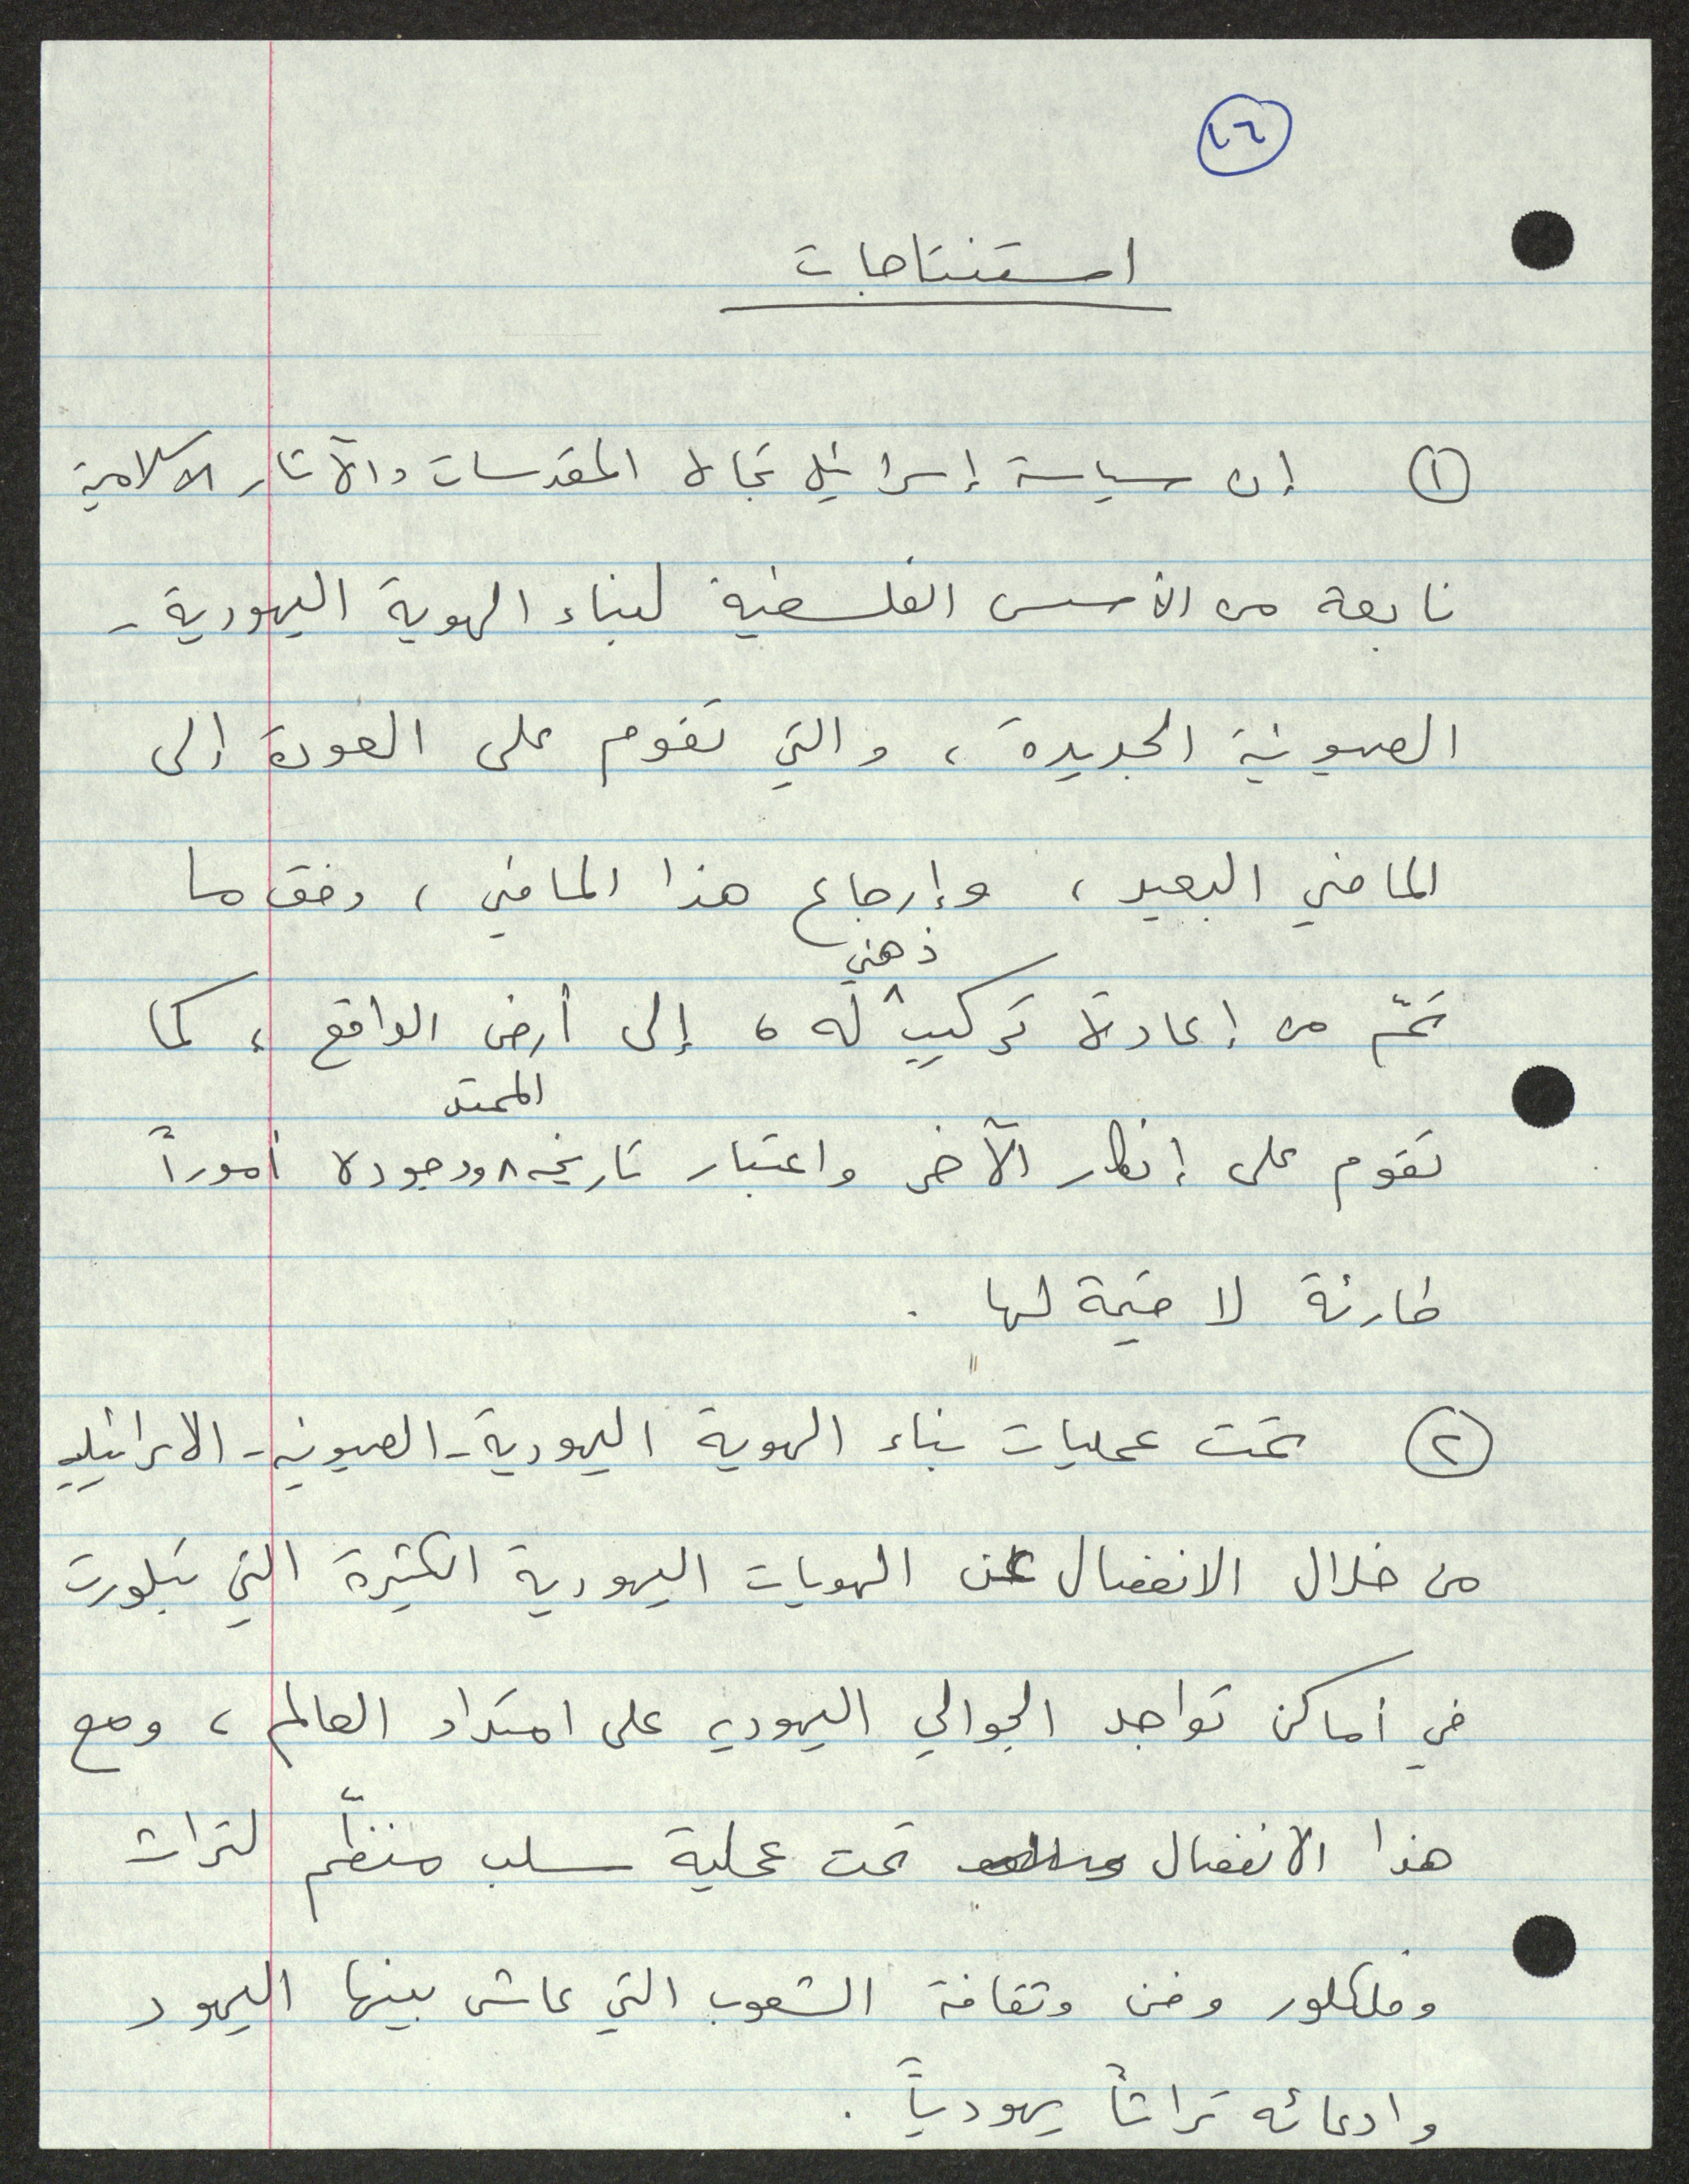 ٤٦
استنتاجات
① إن سياسة إسرائيل تجاه المقدسات والآثار الاسلامية
نابعة من الأسس الفلسفية لبناء الهوية اليهودية -
الصهيونية الجديدة، والتي تقوم على العودة إلى
الماضي البعيد، وإرجاع هذا الماضي، وفق ما
تمّ من إعادة تركيب ذهني له، إلى أرض الواقع، كما
تقوم على إنكار الآخر واعتبار تاريخه الممتد ووجوده أموراً
طارئة لا قيمة لها.
② تمت عمليات بناء الهوية اليهودية-الصهيونية-الاسرائيلية
من خلال الانفصال عن الهويات اليهودية الكثيرة التي تبلورت
في أماكن تواجد الجوالي اليهودية على امتداد العالم، ومع
هذا الانفصال تمت عملية سلب منظّم لتراث
وفلكلور وفن وثقافة الشعوب التي عاش بينها اليهود
وادعائه تراثاً يهودياً.